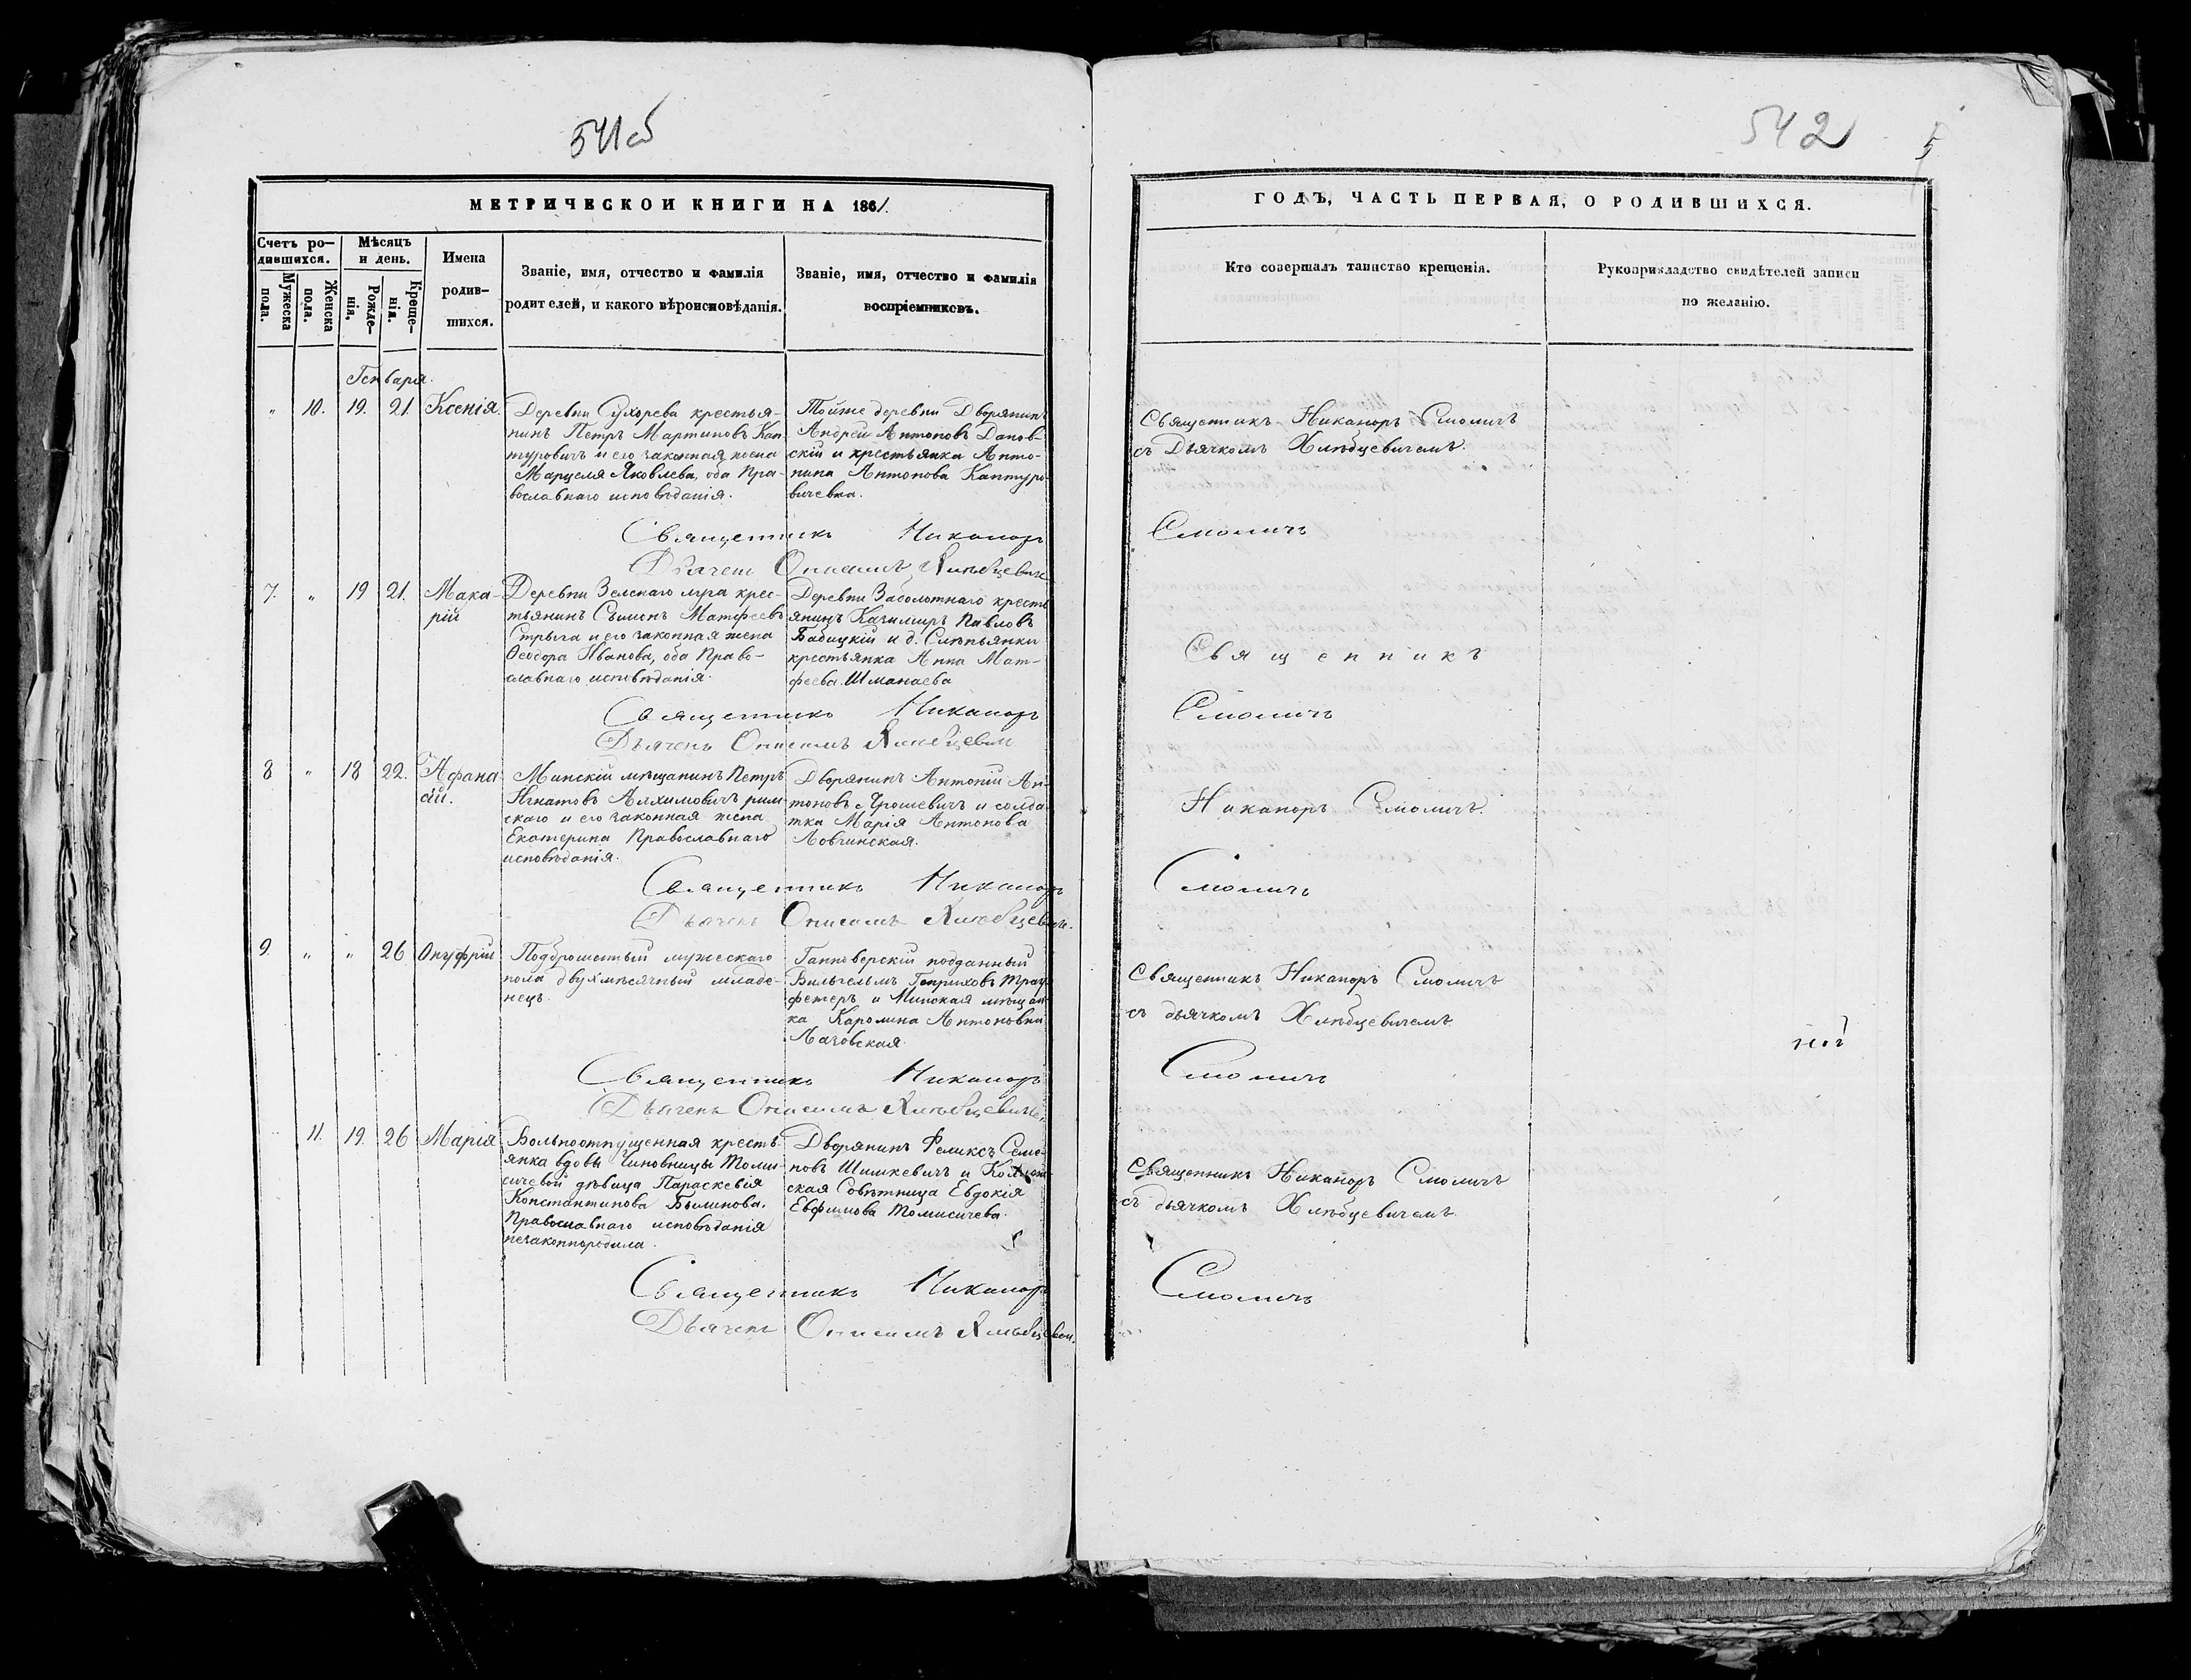 541об
МЕТРИЧЕСКОЙ КНИГИ НА 1861.
Счетъ ро-
дившихся.
Мужеска
пола.
Женска
пола.
Мѣсяцъ
и день.
Рожде-
нія.
Креще-
нія.
Имена
родив-
шихся.
Званіе, имя, отчество и фамилія
родителей, и какого вѣроисповѣданія.
Званіе, имя, отчество и фамилія
воспріемниковъ.
Генваря.
" 10. 19. 21. Ксенія.
Деревни Сухорева крестья-
нинъ Петръ Мартиновъ Кап-
туровичъ и его законная жена
Марцеля Яковлева, оба Пра-
вославнаго исповѣданія.
Тойже деревни Дворянинъ
Андрей Антоновъ Данов-
скій и крестьянка Анто-
нина Антонова Каптуро-
вичевна.
Священникъ Никаноръ
Дьячекъ Онисимъ Хлѣбцевичъ
7. " 19 21. Мака-
рій
Деревни Зеленаго луга крес-
тьянинъ Сѵмонъ Матфеевъ
Стрыга и его законная жена
Ѳеодора Иванова, оба Право-
славнаго исповѣданія.
Деревни Заболотнаго кресть-
янинъ Казимиръ Павловъ
Бабицкій и д. Слѣпьянки
крестьянка Анна Мат-
феева Шманаева
Священникъ Никаноръ
Дьячекъ Онисимъ Хлѣбцевичъ
8 " 18 22. Афана-
сій.
Минскій мѣщанинъ Петръ
Игнатовъ Аляхимовичъ рим-
скаго и его законная жена
Екатерина Православнаго
исповѣданія.
Дворянинъ Антоній Ан-
тоновъ Ярошевичъ и солда-
тка Марія Антонова
Ловчинская.
Священникъ Никаноръ
Дьячекъ Онисимъ Хлѣбцевичъ.
9. " " 26 Онуфрій
Подброшенный мужескаго
пола двухмѣсячный младе-
нецъ.
Ганноверскій подданный
Вильгельмъ Генриховъ Трау-
фетеръ и Минская мѣщан-
ка Каролина Антоновна
Лаговская.
Священникъ Никаноръ
Дьячекъ Онисимъ Хлѣбцевичъ.
11. 19. 26 Марія
Вольноотпущенная кресть-
янка вдовы Чиновницы Томи-
сичевой дѣвица Параскевія
Константинова Былинова.
Православнаго исповѣданія
незаконнородила.
Дворянинъ Феликсъ Семе-
новъ Шишкевичъ и
ская Совѣтница Евдокія
Евфимова Томисичева.
Священникъ Никаноръ
Дьячекъ Онисимъ Хлѣбцевич.
542
5
ГОДЪ, ЧАСТЬ ПЕРВАЯ, О РОДИВШИХСЯ.
Кто совершалъ таинство крещенія.
Рукоприкладство свидѣтелей записи
по желанію.
Священникъ Никаноръ Смоличъ
съ Дьячкомъ Хлѣбцевичемъ.
Смоличъ
Священникъ
Смоличъ
Никаноръ Смоличъ.
Смоличъ
Священникъ Никаноръ Смоличъ
съ дьячкомъ Хлѣбцевичемъ
Смоличъ
Священникъ Никаноръ Смоличъ
съ дьячкомъ Хлѣбцевичемъ
Смоличъ